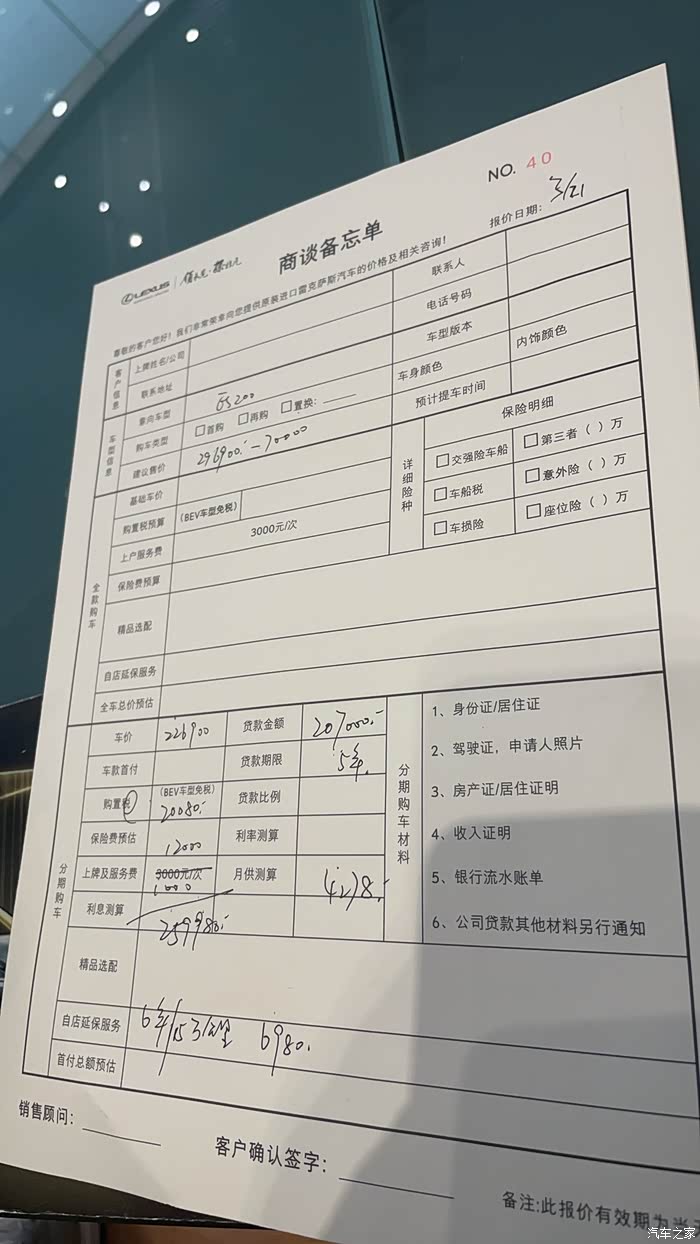 NO. 40
LEXUS
商谈备忘单
报价日期: 3/21
尊敬的客户您好！我们非常荣幸向您提供原装进口雷克萨斯汽车的价格及相关咨询！
客户信息
上牌姓名/公司
联系人
联系地址
电话号码
车型信息
意向车型 ES200 车型版本
购车类型 首购 再购 置换: 车身颜色 内饰颜色
建议售价 296900.-70000 预计提车时间
全款购车
基础车价
购置税预算 (BEV车型免税)
上户服务费 3000元/次
保险费预算
精品选配
自店延保服务
全车总价预估
详细险种
保险明细
交强险车船 第三者（ ）万
车船税 意外险（ ）万
车损险 座位险（ ）万
分期购车
车价 226900 贷款金额 207000.-
车款首付 贷款期限 5年.
购置税 (BEV车型免税) 20080.- 贷款比例
保险费预估 12000 利率测算
上牌及服务费 3000元/次 1000 月供测算 4278.-
利息测算 259980.-
精品选配
自店延保服务 6年/15万公里 6980.
首付总额预估
分期购车材料
1、身份证/居住证
2、驾驶证，申请人照片
3、房产证/居住证明
4、收入证明
5、银行流水账单
6、公司贷款其他材料另行通知
销售顾问:
客户确认签字:
备注:此报价有效期为当
汽车之家